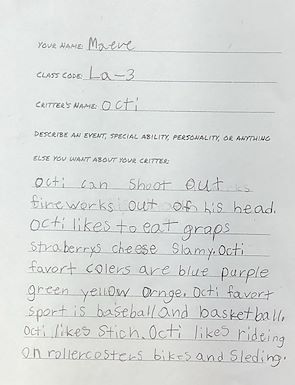 YOUR NAME: Maeve
CLASS CODE: La-3
CRITTER'S NAME: octi
DESCRIBE AN EVENT, SPECIAL ABILITY, PERSONALITY, OR ANYTHING
ELSE YOU WANT ABOUT YOUR CRITTER:
Octi can shoot out
fineworks out of his head.
Octi likes to eat graps
straberrys cheese Slamy. Octi
favort colers are blue purple
green yellow ornge. Octi favort
sport is baseball and basketball.
Octi likes Stich. Octi likes rideing
on rollercosters bikes and Sleding.